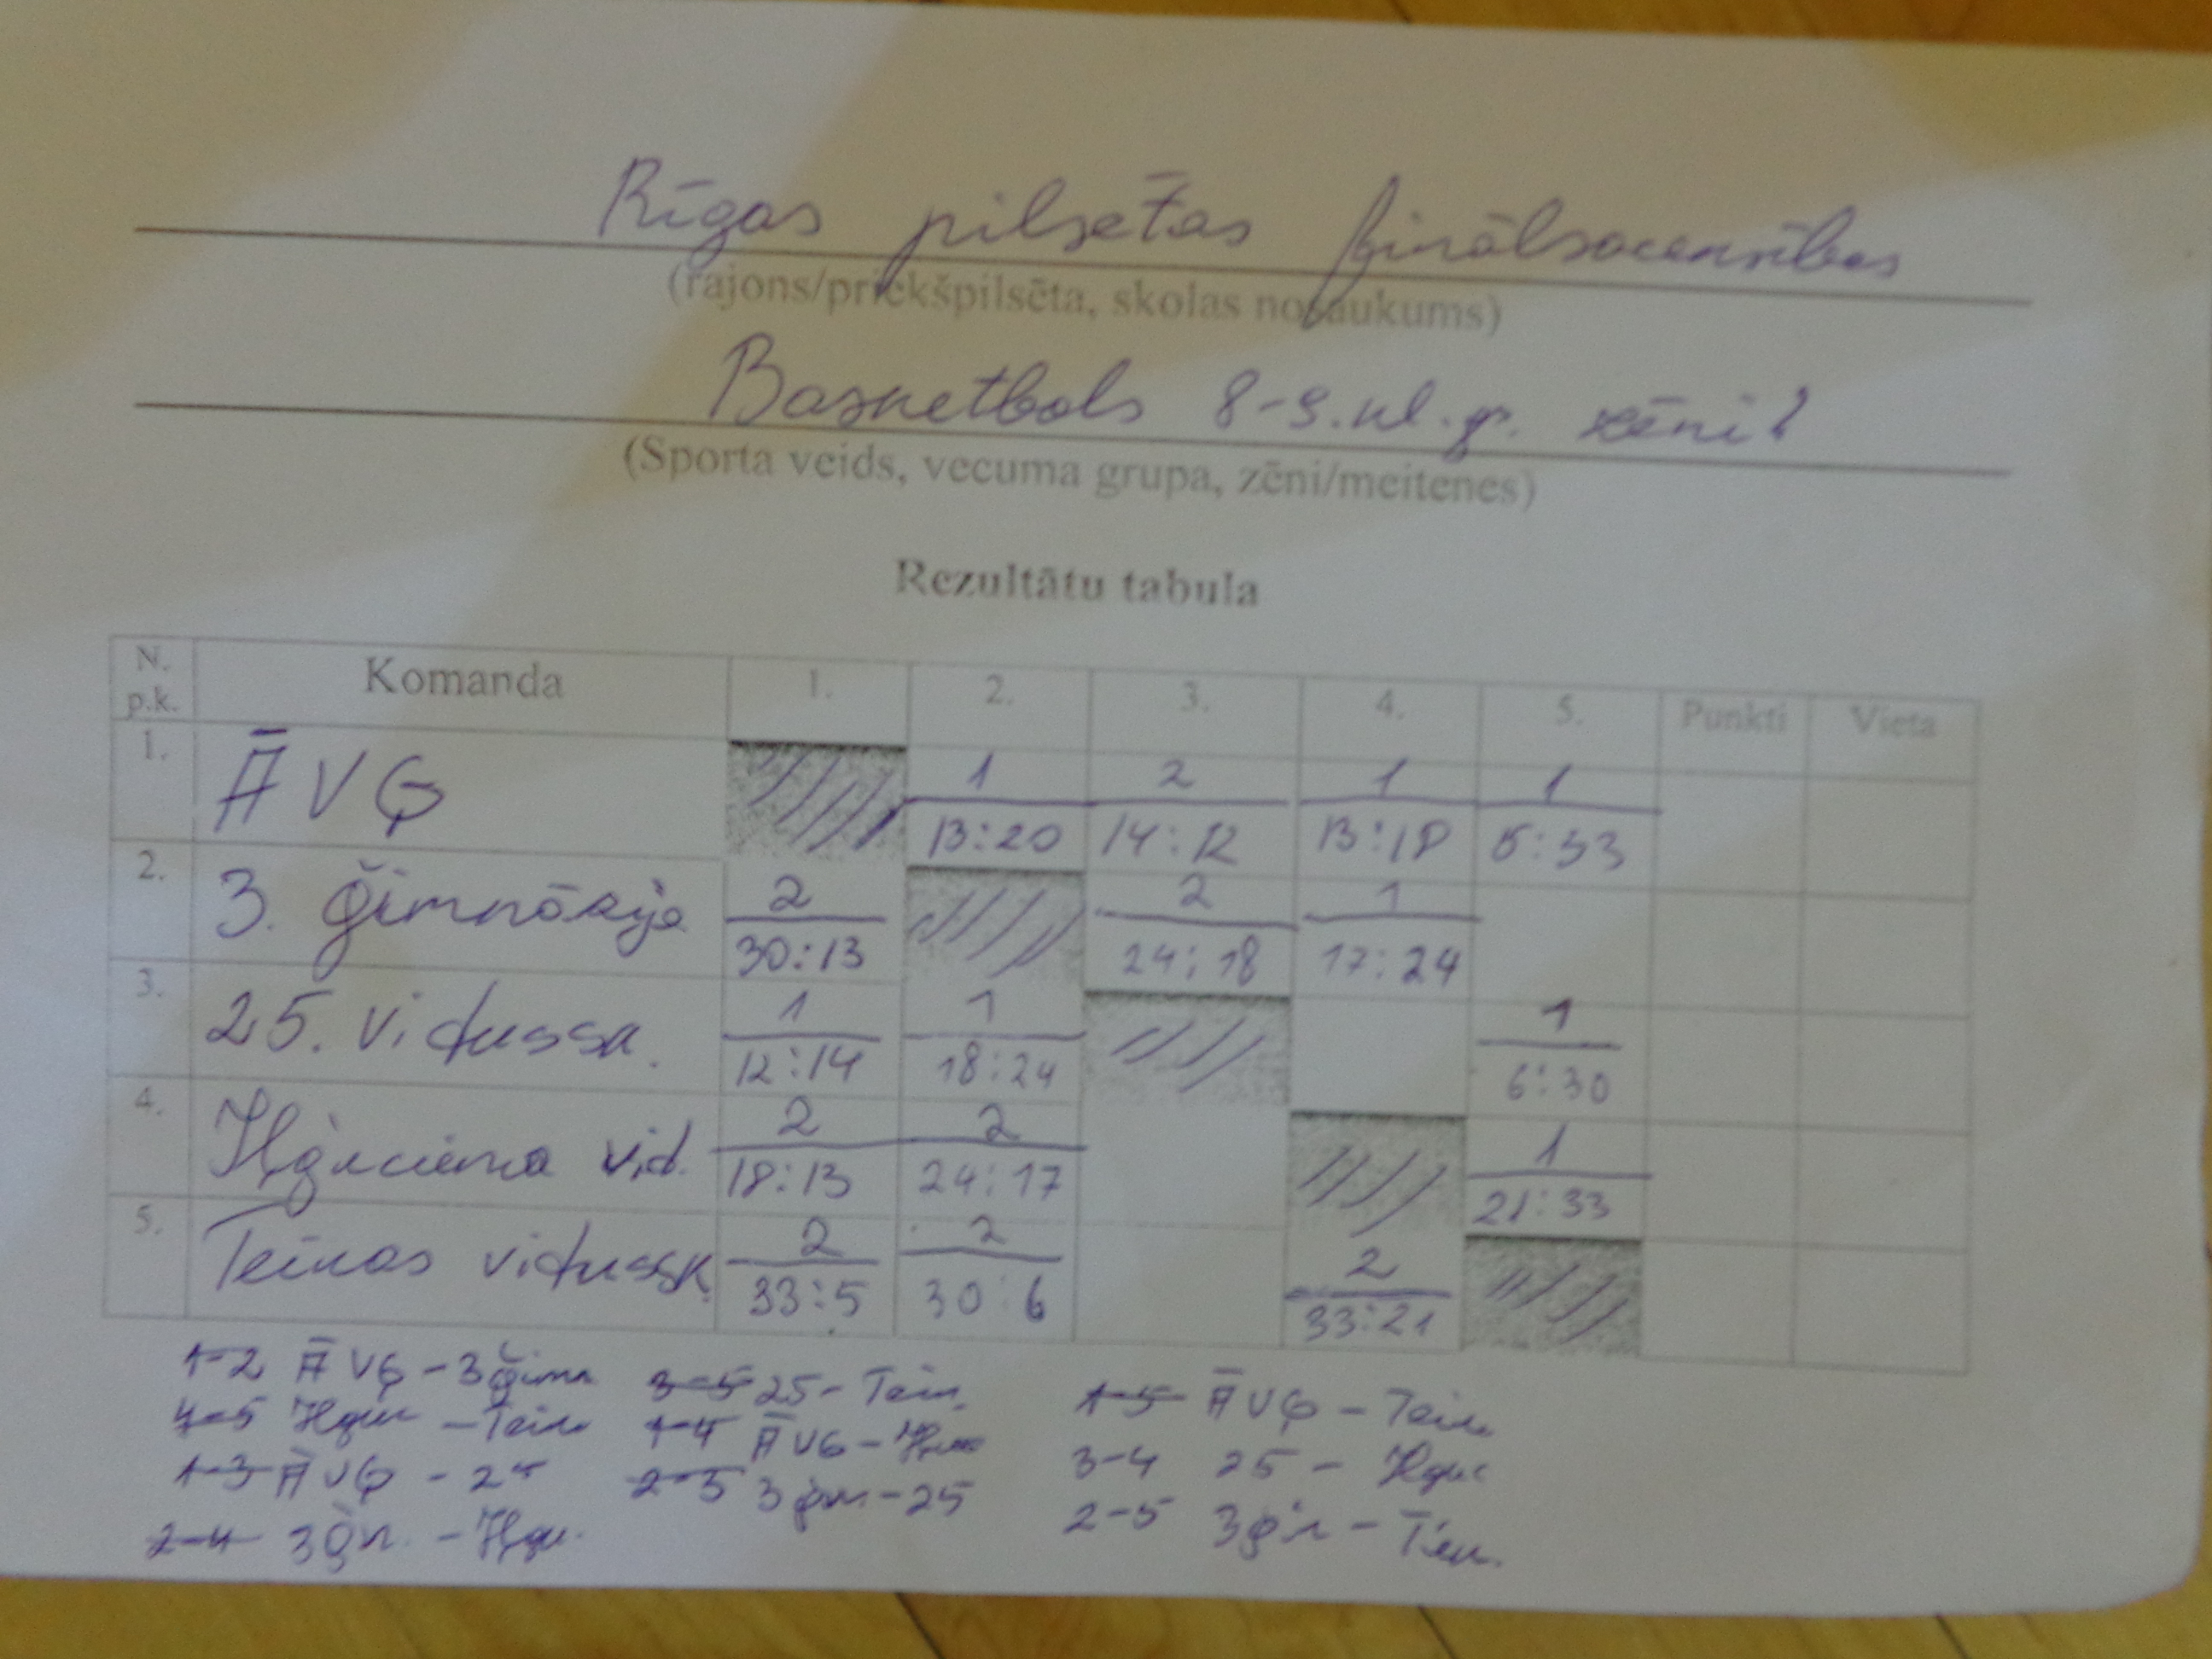 Rīgas pilsētas finālsacensības
(rajons/priekšpilsēta, skolas nosaukums)
Basketbols 8-9.kl.gr. zēni
(Sporta veids, vecuma grupa, zēni/meitenes)
Rezultātu tabula
N. p.k. Komanda 1. 2. 3. 4. 5. Punkti Vieta
1. ĀVĢ 1 13:20 2 14:12 1 13:18 1 5:33
2. 3. ģimnāzija 2 30:13 2 24:18 1 17:24
3. 25. vidussk. 1 12:14 1 18:24 1 6:30
4. Iļģuciema vid. 2 18:13 2 24:17 1 21:33
5. Teikas vidussk. 2 33:5 2 30:6 2 33:21
1-2 ĀVĢ - 3 ģimn 3-5 25 - Teik. 1-5 ĀVĢ - Teik.
4-5 Iļģuc - Teik 1-4 ĀVG - 3-4 25 - Iļģuc
1-3 ĀVĢ - 25 2-3 3 ģim - 25 2-5 3 ģim - Teik.
2-4 3 ģim. - Iļģu.